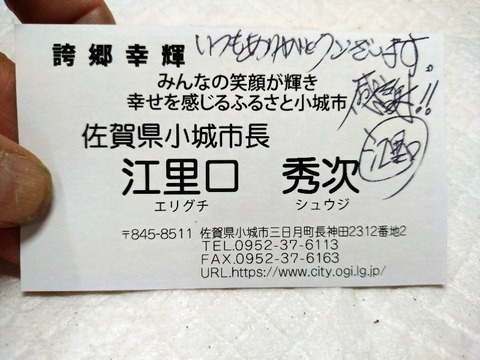 誇郷幸輝
いつもありがとうございます。
感謝!!
江里口
みんなの笑顔が輝き
幸せを感じるふるさと小城市
佐賀県小城市長
江里口 秀次
エリグチ シュウジ
〒845-8511 佐賀県小城市三日月町長神田2312番地2
TEL.0952-37-6113
FAX.0952-37-6163
URL.https://www.city.ogi.lg.jp/